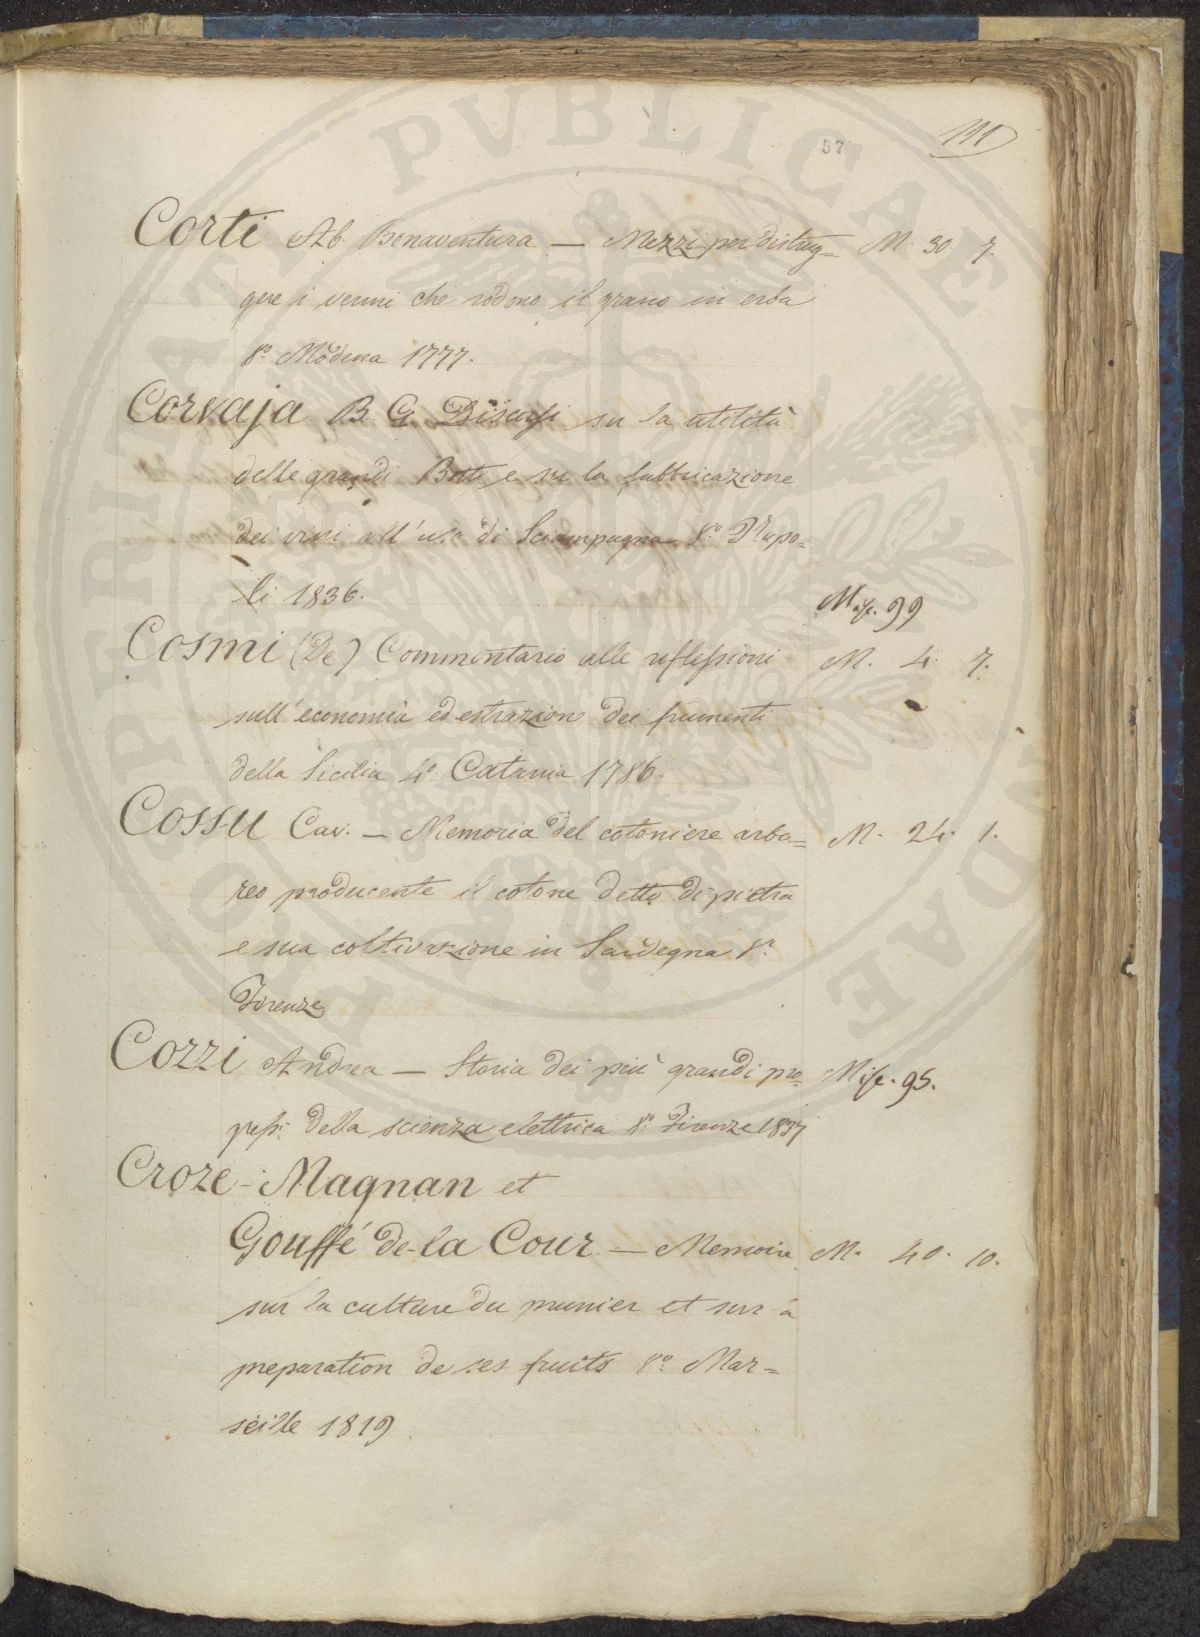 57
111
Corti Ab. Bonaventura — Mezzi per distrug= M. 30 7.
gere i vermi che rodono il grano in erba
8.º Modena 1777.
Corvaja B. G. Discorsi su la utilità
delle grandi Botti, e su la fabbricazione
dei vini all'uso di Sciampagna 8.º Napo=
li 1836. Misc. 99
Cosmi (De) Commentario alle riflessioni M. 4. 7.
sull'economia ed estrazione dei frumenti
della Sicilia 4º Catania 1786.
Cossu Cav. — Memoria del cotoniere arbo= M. 24. 1.
reo producente il cotone detto di pietra
e sua coltivazione in Sardegna 8.º
Firenze
Cozzi Andrea — Storia dei più grandi pro= Misc. 95.
gressi della scienza elettrica 8.º Firenze 1837
Croze-Magnan et
Gouffé de-la Cour — Memoire M. 40. 10.
sur la culture du prunier et sur a
preparation de ses fruits 8.º Mar=
seille 1819.